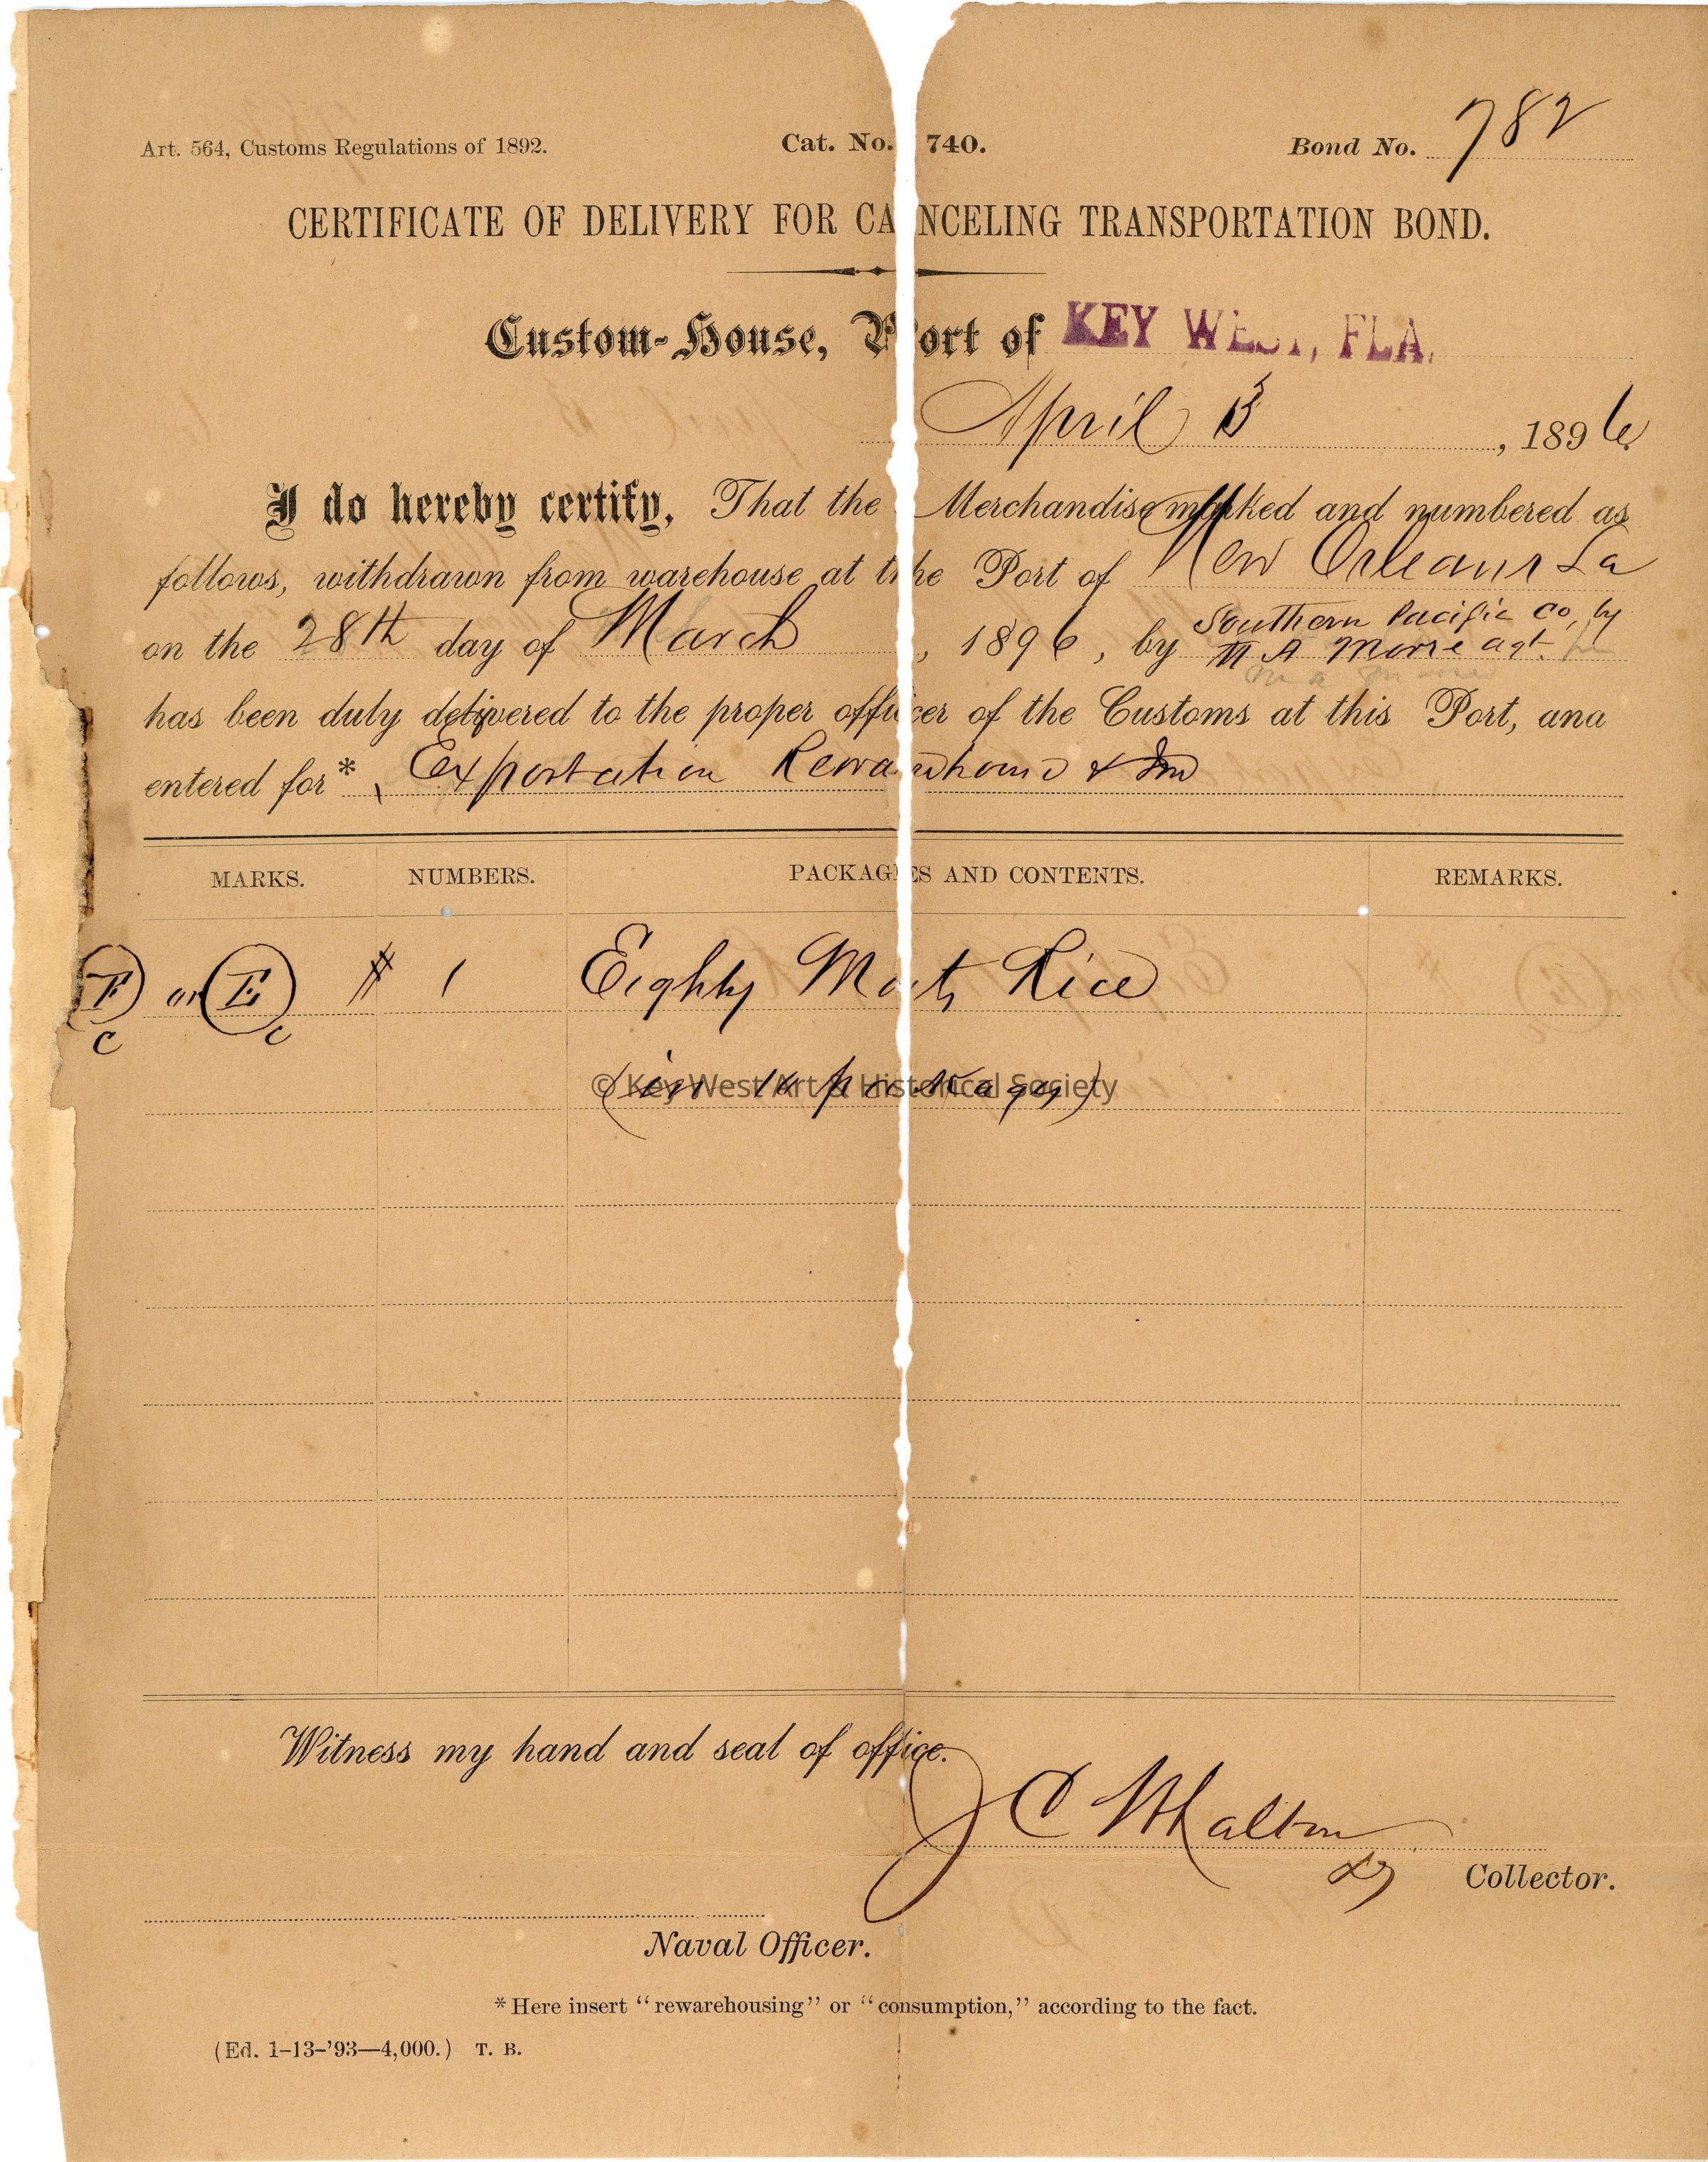 Art. 564, Customs Regulations of 1892. Cat. No. 740. Bond No. 782
CERTIFICATE OF DELIVERY FOR CANCELING TRANSPORTATION BOND.
Custom-House, Port of KEY WEST, FLA.
April 13, 1896
I do hereby certify, That the Merchandise marked and numbered as
follows, withdrawn from warehouse at the Port of New Orleans La
on the 28th day of March, 1896, by Southern Pacific Co, by
A Morse agt.
has been duly delivered to the proper officer of the Customs at this Port, and
entered for* Exportation Rewarehouse &
MARKS. NUMBERS. PACKAGES AND CONTENTS. REMARKS.
F or E # 1 Eighty Mats Rice
C C
(in packages)
© Key West Art & Historical Society
Witness my hand and seal of office.
J C Whalton
Dy Collector.
Naval Officer.
*Here insert "rewarehousing" or "consumption," according to the fact.
(Ed. 1-13-'93—4,000.) T. B.